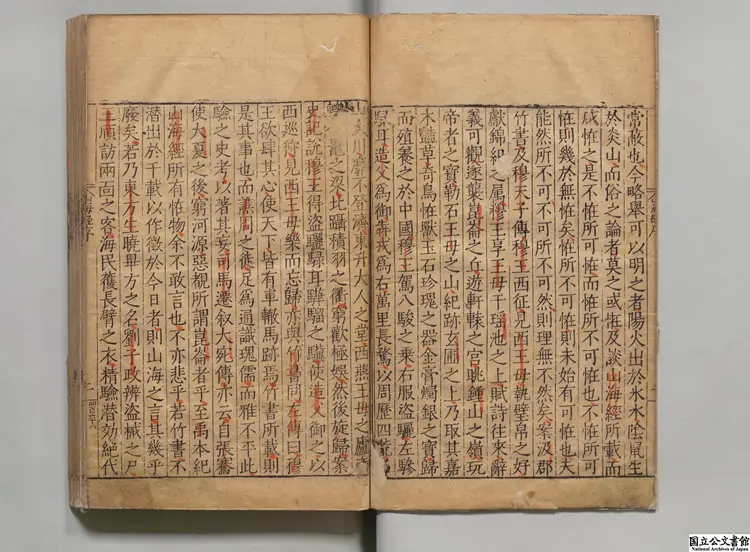 常敝也今略舉可以明之者陽火出於氷水陰鼠生
於炎山而俗之論者莫之或怪及談山海經所載而
咸怪之是不怪所可怪而怪所不可怪也不怪所可
怪則幾於無怪矣怪所不可怪則未始有可怪也夫
能然所不可不可所不可然則理無不然矣案汲郡
竹書及穆天子傳穆王西征見西王母執璧帛之好
獻錦組之属穆王享王母于瑶池之上賦詩往來辭
義可觀遂襲崑崙之丘遊軒轅之宮眺鍾山之嶺玩
帝者之寶勒石王母之山紀跡玄圃之上乃取其嘉
木豔草奇鳥怪獸玉石珍瑰之器金膏燭銀之寶歸
而殖養之於中國穆王駕八駿之乗右服盗驪左驂
耳造父為御犇戎為右萬里長騖以周歷四荒
川靡不登濟東升大人之堂西燕王母之廬
鼉之梁比躡積羽之衢窮歡極娯然後旋歸案
史記說穆王得盗驪騄耳驊騮之驥使造父御之以
西巡狩見西王母樂而忘歸亦與竹書同左傳曰穆
王欲肆其心使天下皆有車轍馬跡焉竹書所載則
是其事也而譙周之徒足爲通識瑰儒而雅不平此
驗之史考以著其妄司馬遷叙大宛傳亦云自張騫
使大夏之後窮河源惡覩所謂崑崙者乎至禹本紀
山海經所有怪物余不敢言也不亦悲乎若竹書不
潜出於千載以作徵於今日者則山海之言其幾乎
廢矣若乃東方生曉畢方之名劉子政辨盗械之尸
王頎訪兩面之客海民獲長臂之衣精驗潜効絶代
山海經序
国立公文書館
National Archives of Japan